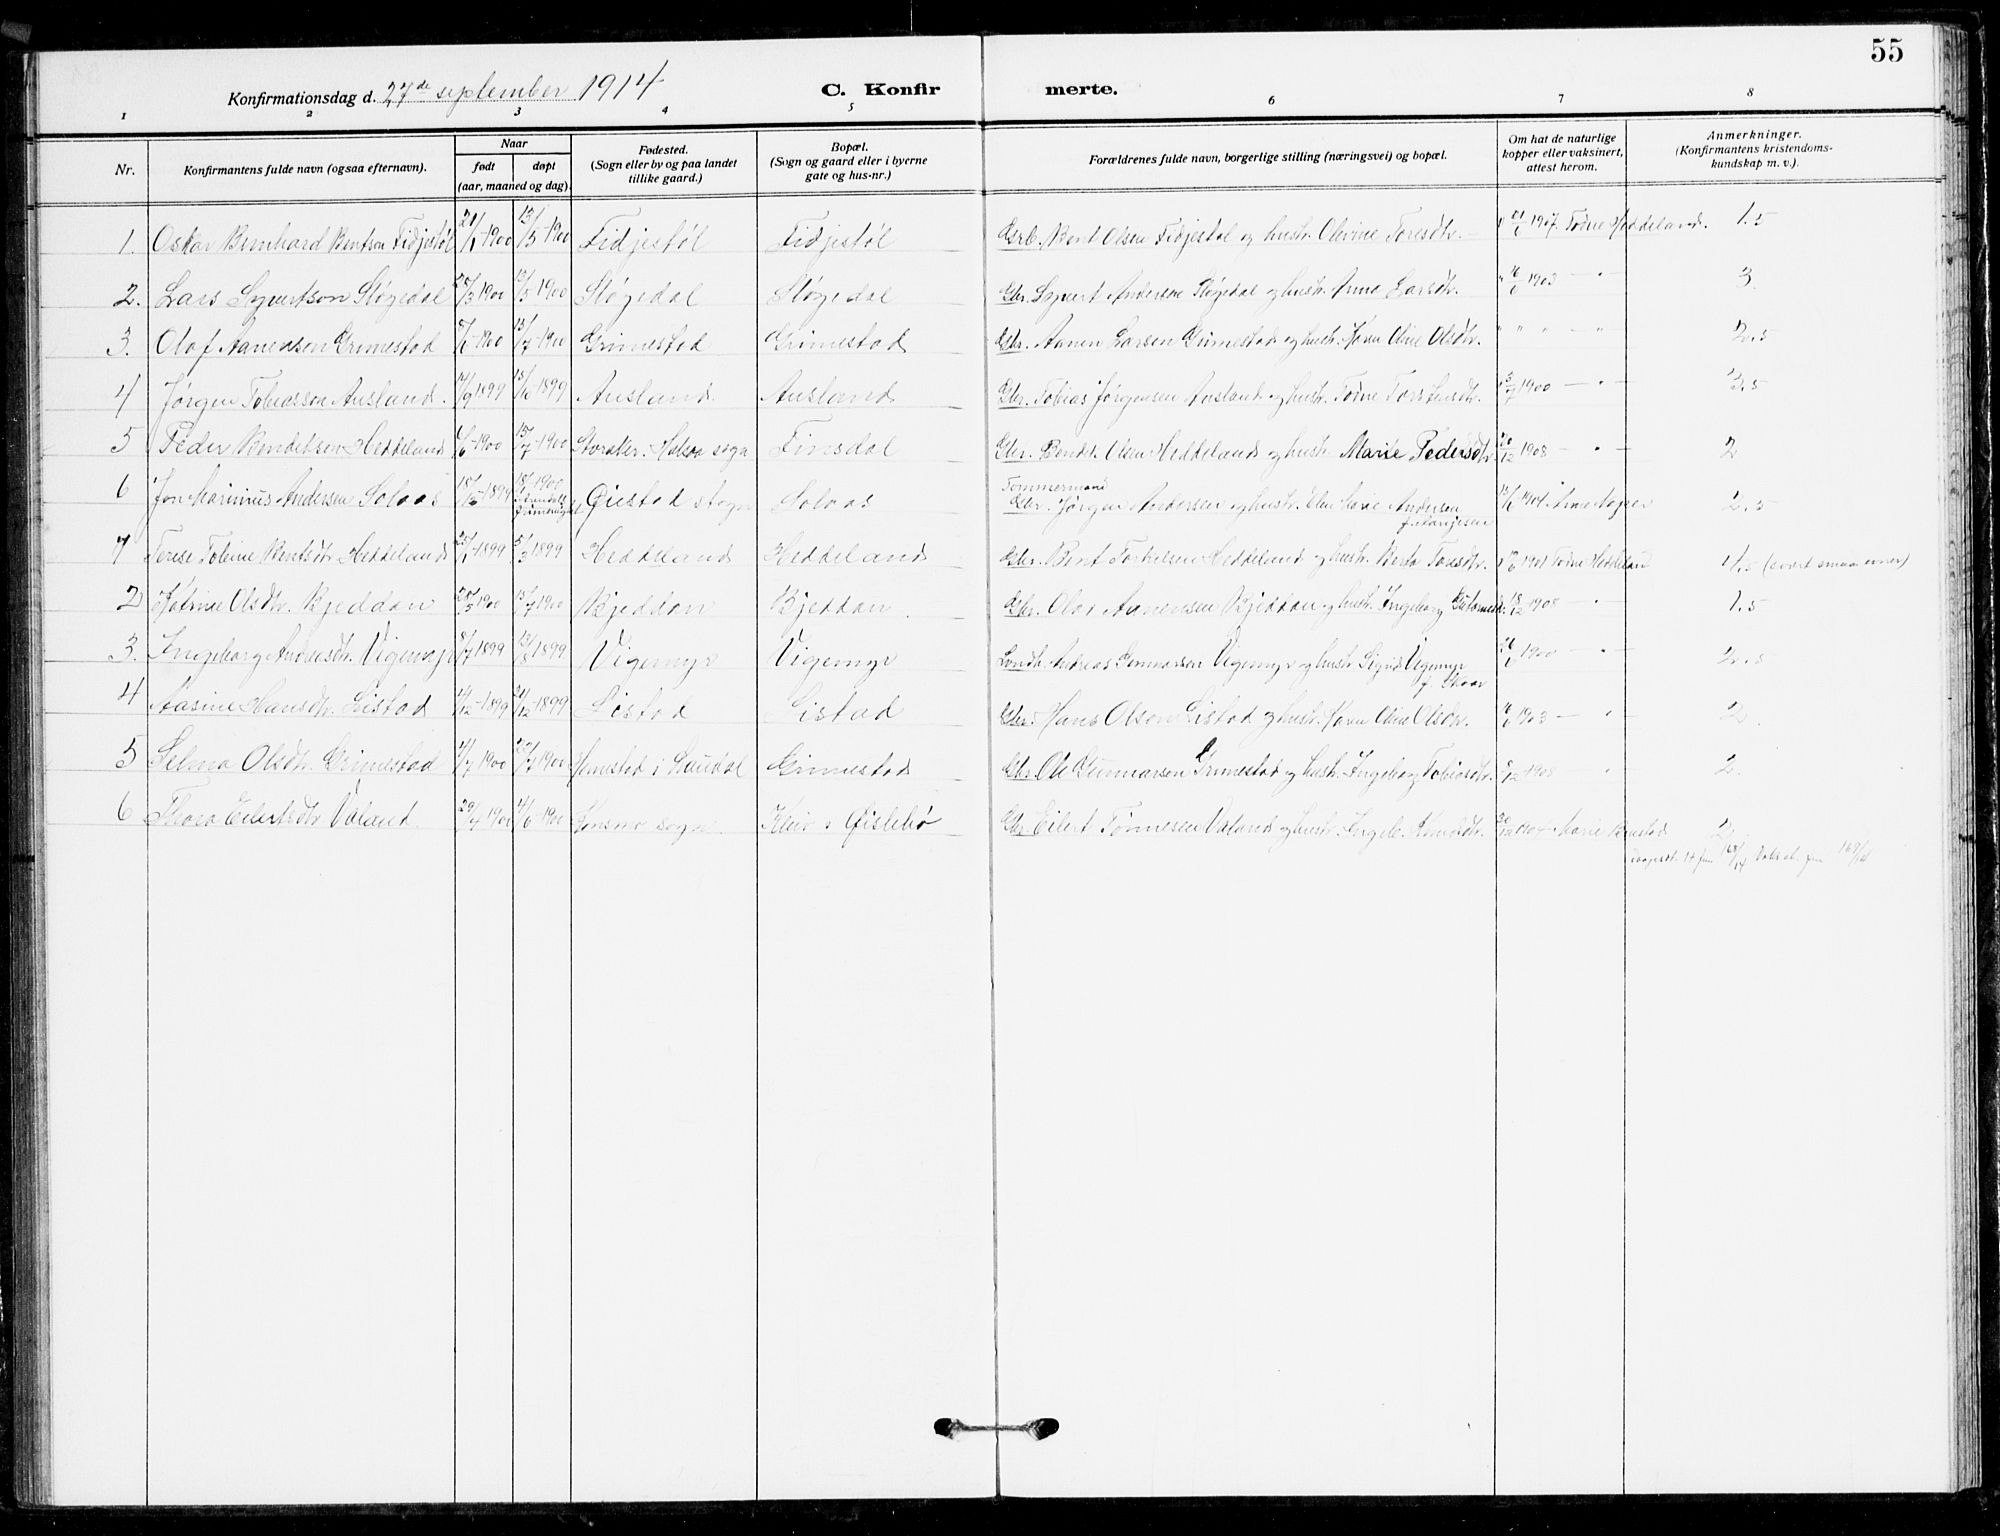 55
Konfirmationsdag d. 27de september 1914 C. Konfir merte.
1 2 3 4 5 6 7 8
Nr. Konfirmantens fulde navn (ogsaa efternavn). Naar født døpt (aar, maaned og dag). Fødested. (Sogn eller by og paa landet tillike gaard.) Bopæl. (Sogn og gaard eller i byerne gate og hus-nr.) Forældrenes fulde navn, borgerlige stilling (næringsvei) og bopæl. Om hat de naturlige kopper eller vaksinert, attest herom. Anmerkninger. (Konfirmantens kristendoms- kundskap m. v.).
1. Oskar Bernhard Bentsen Fidjestøl 21/1-1900 13/5-1900 Fidjestøl Fidjestøl Grb. Bent Olsen Fidjestøl og hustr. Olivine Toresdtr. 1907 Tørne Heddeland. 1.5
2. Lars Syvertson Støgedal /3 1900 13/5-1900 Støgedal Støgedal Gbr. Syvert Andersen Støgedal og hustr. Anna Larsdtr. 1903 — " — 3.
3. Olaf Aanensen Grimestad 1900 15/7-1900 Grimestad Grimestad Gbr. Aanen Larsen Grimestad og hustr. Karen Oline Olsdtr. " " " — " 2.5
4 Jørgen Tobiassen Ausland. /9 1899 1899 Ausland Ausland Gbr. Tobias Jørgensen Ausland og hustr. Tørne Torstensdtr. 1900 — " — 3.5
5 Peder Bendiksen Heddeland /6-1900 15/7-1900 Halsaa sogn Finsdal Gbr. Olsen Heddeland og hustr. Marie Pedersdtr. /12 1908 — " — 2
6 Jon Marinius Andersen Solaas 1900 Øiestad sogn Solaas Tømmermand
Gbr. Jørgen Andersen og hustr. Marie Andersen 1904 2.5
7 Terese Tobine Bentsdtr. Heddeland 1899 5/3 1899 Heddeland Heddeland Gbr. Bent Torkelsen Heddeland og hustr. Berta Toresdtr. 1901 Tørne Heddeland 1.5 (svært smaa evner)
2 Katrine Olsdtr. Bjeddan 1900 15/7 1900 Bjeddan Bjeddan Gbr. Olav Aanensen Bjeddan og hustr. Ingeborg 18/12 1908 — " — 1.5
3. Ingeborg Andreasdtr. Vigemyr 8/7 1899 13/8 1899 Vigemyr Vigemyr Andreas Gunnarsen Vigemyr og hustr. Sigrid Vigemyr
f. Skaar 1900 — " — 2.5
4 Aasine Hansdtr. Listad /12-1899 /12-1899 Listad Listad Gbr. Hans Olson Listad og hustr. Karen Oline Olsdtr. 1903 — " — 2.
5 Selma Olsdtr. Grimestad /7 1900 1900 i Laudal Grimestad Gbr. Ole Gunnarsen Grimestad og hustr. Ingeborg Tobiasdtr. /12 1908 " 2.
6 Thora Eilertsdtr. Valand 29/4 1900 /6-1900 Konsmo sogn Øislebø Gbr. Eilert Tønnesen Valand og hustr. Ingeb. Knudsdtr. Marie 2